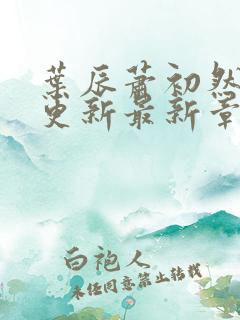 葉辰蕭初然
更新最新章
白袍人
未经同意禁止转载